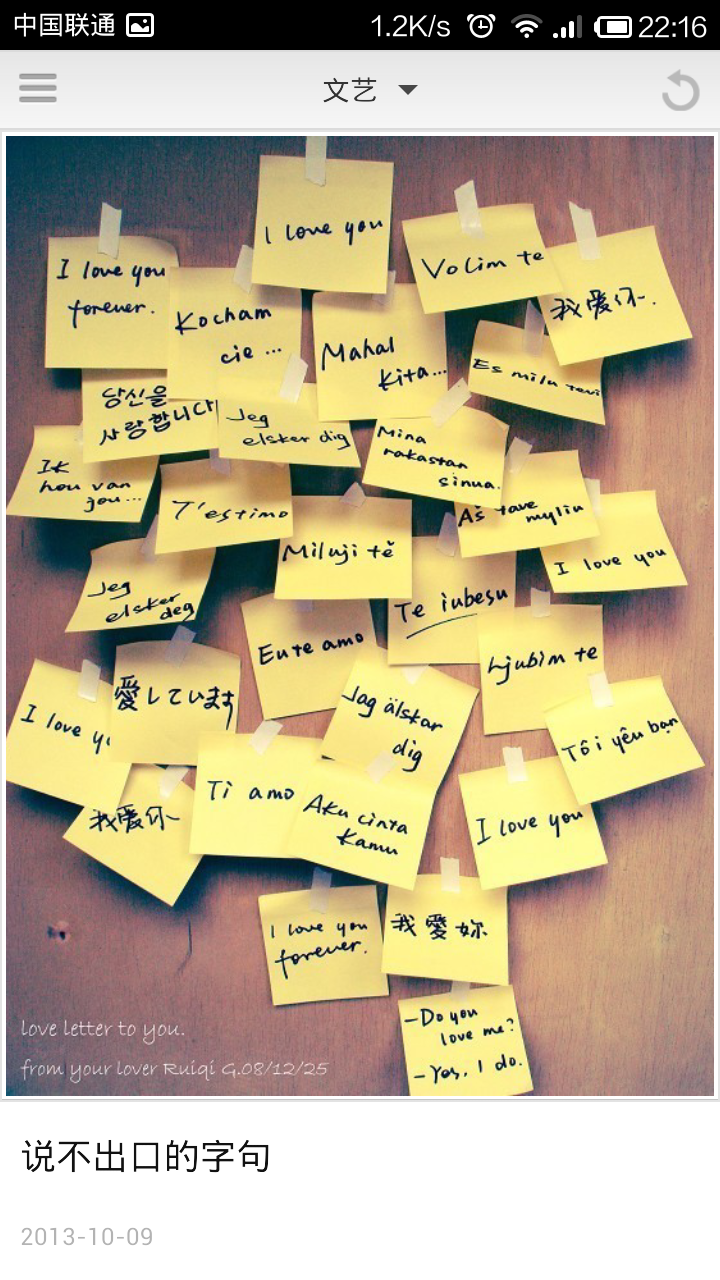 中国联通
1.2K/s
22:16
文艺
I love you
I love you
forever.
Kocham
cie ...
Volim te
我爱你.
Mahal
kita...
Es milu tevi
당신을
사랑합니다
Jeg
elsker dig
Mina
rakastan
sinua.
Ik
hou van
jou...
T'estimo
Aš tave
myliu
Miluji tě
I love you
Jeg
elsker
deg
Te iubesu
Eu te amo
Ljubim te
愛しています
Jag älskar
dig
I love yo
Tôi yêu bạn
Ti amo
Aku cinta
kamu
我爱你
I love you
I love you
forever.
我愛妳
-Do you
love me?
-Yes, I do.
love letter to you.
from your lover Ruiqi G.08/12/25
说不出口的字句
2013-10-09